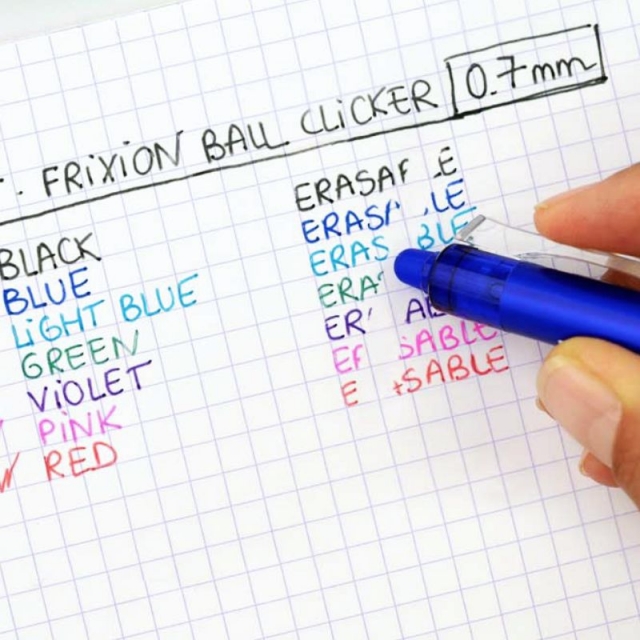 FRIXION BALL CLICKER 0.7mm
BLACK
BLUE
LIGHT BLUE
GREEN
VIOLET
PINK
RED
ERASA E
ERAS LE
ERAS BLE
ERA
ER A
E SABLE
E SABLE